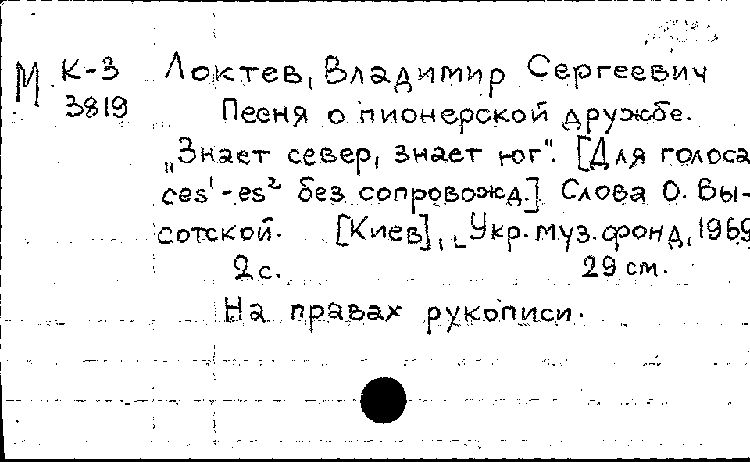 М К-3 Локтев, Владимир Сергеевич
3819 Песня о пионерской дружбе.
„Знает север, знает юг". [Для голоса
ces¹-es² без сопровожд.] Слова О. Вы-
сотской. [Киев], Укр. муз. фонд, 1969
2 с. 29 см.
На правах рукописи.